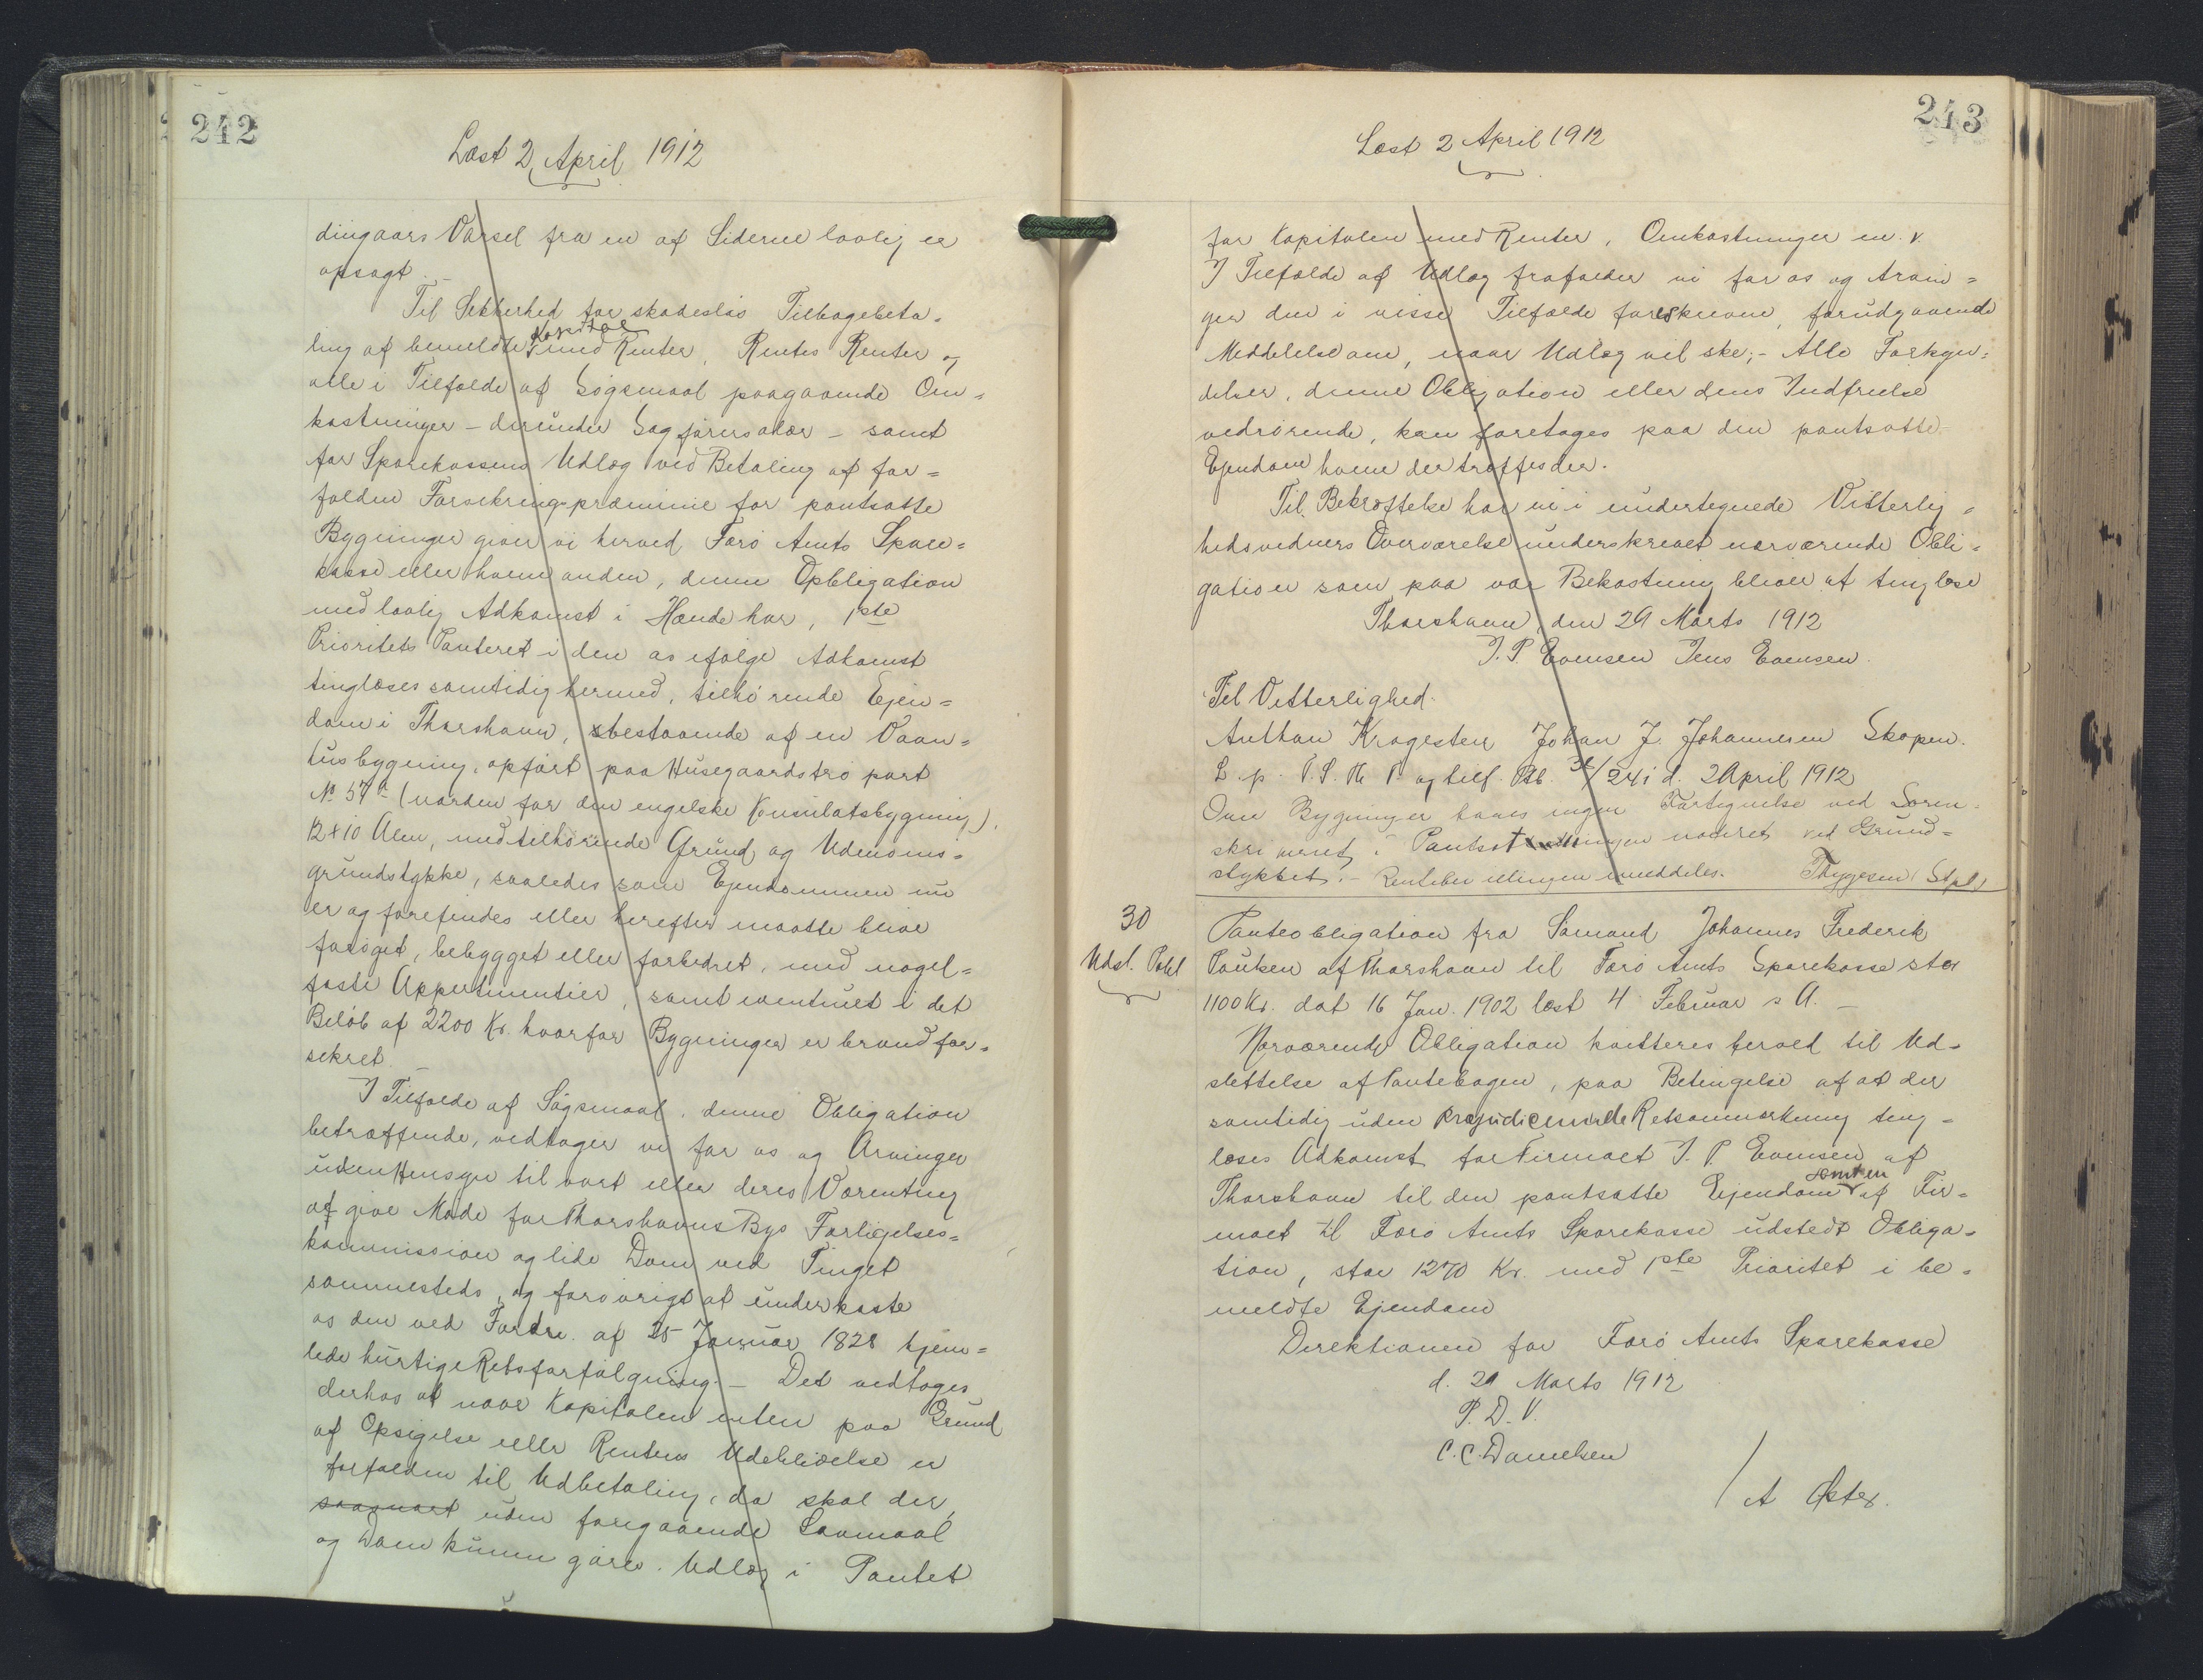 242
Læst 2 April 1912
dingaars Varsel fra en af Siderne lovlig er
opsagt. –
Til Sikkerhed for skadesløs Tilbagebeta-
Kapital
ling af bemeldte med Renter, Rentes Renter og
alle i Tilfælde af Søgsmaal paagaaende Om-
kostninger – derunder Sagførersalær – samt
for Sparekassens Udlæg ved Betaling af for-
falden Forsikringspræmie for pantsatte
Bygninger giver vi herved Færø Amts Spare-
kasse eller hvem anden, denne Opbligation
med lovlig Adkomst i Hænde har, 1ste
Prioritets Panteret i den os ifølge Adkomst
tinglæses samtidig hermed, tilhørende Ejen-
dom i Thorshavn, bestaaende af en Vaan-
husbygning, opført paa Husegaardstrø part
No 57a (norden for den engelske Konsulatsbygning),
12 x 10 Alen, med tilhørende Grund og Udenoms-
grundstykke, saaledes som Ejendommen nu
er og forefindes eller herefter maatte blive
forøget, bebygget eller forbedret, med nagel-
faste Appertinentier, samt eventuelt i det
Beløb af 2200 Kr. hvorfor Bygninger er brandfor-
sikret. –
I Tilfælde af Søgsmaal, denne Obligation
betræffende, vedtager vi for os og Arvinger
uden Hensyn til vort eller deres Værenting
at give Møde for Thorshavns Bys Forligelses-
kommission og lide Dom ved Tinget
sammesteds, og forøvrigt at underkaste
os den ved Fordn. af 25 Januar 1828 hjem-
lede hurtige Retsforfølgning. – Det vedtages
derhos at naar Kapitalen enten paa Grund
af Opsigelse eller Rentens Udeblivelse er
forfalden til Udbetaling, da skal der,
saasnart uden foregaaende Lavmaal
og Dom kunne gøres Udlæg i Pantet
243
Læst 2 April 1912
for Kapitalen med Renter, Omkostninger m. v.
I Tilfælde af Udlæg frafalder vi for os og Arvin-
ger den i visse Tilfælde foreskrevne, forudgaaende
Meddelelse om, naar Udlæg vil ske; – Alle Forkyn-
delser, denne Obligation eller dens Indfrielse
vedrørende, kan foretages paa den pantsatte
Ejendom hvem der træffes der.
Til Bekræftelse har vi i undertegnede Vitterlig-
hedsvidners Overværelse underskrevet nærværende Obli-
gation som paa vor Bekostning bliver at tinglæse
Thorshavn, den 29 Marts 1912
J. P. Evensen Jens Evensen.
Til Vitterlighed.
Anthon Krogesten Johan J. Johannesen Skopen.
L. p. T. S. Th P og tilf. Ptb. /241 d. 2 April 1912
Om Bygninger haves ingen Fortegnelse ved Soren-
skriveriet, i Pantsætningen noteret ved Grund-
stykket. – meddeles. Thygesen (Stpl)
30
Udsl. Pobl
Panteobligation fra Sømand Johannes Frederik
Poulsen af Thorshavn til Færø Amts Sparekasse stor
1100 Kr. dat 16 Jan. 1902 læst 4 Februar s A. –
Nærværende Obligation kvitteres herved til Ud-
slettelse af Pantebogen, paa Betingelse af at der
samtidig uden præjudicerende Retsanmærkning ting-
læses Adkomst for Firmaet J. P. Evensen af
samt en
Thorshavn til den pantsatte Ejendom af Fir-
maet til Færø Amts Sparekasse udstedt Obliga-
tion, stor 1270 Kr. med 1ste Prioritet i be-
meldte Ejendom
Direktionen for Færø Amts Sparekasse
d. 29 Marts 1912
P. D. V.
C. C. Danielsen
/ A Øster.